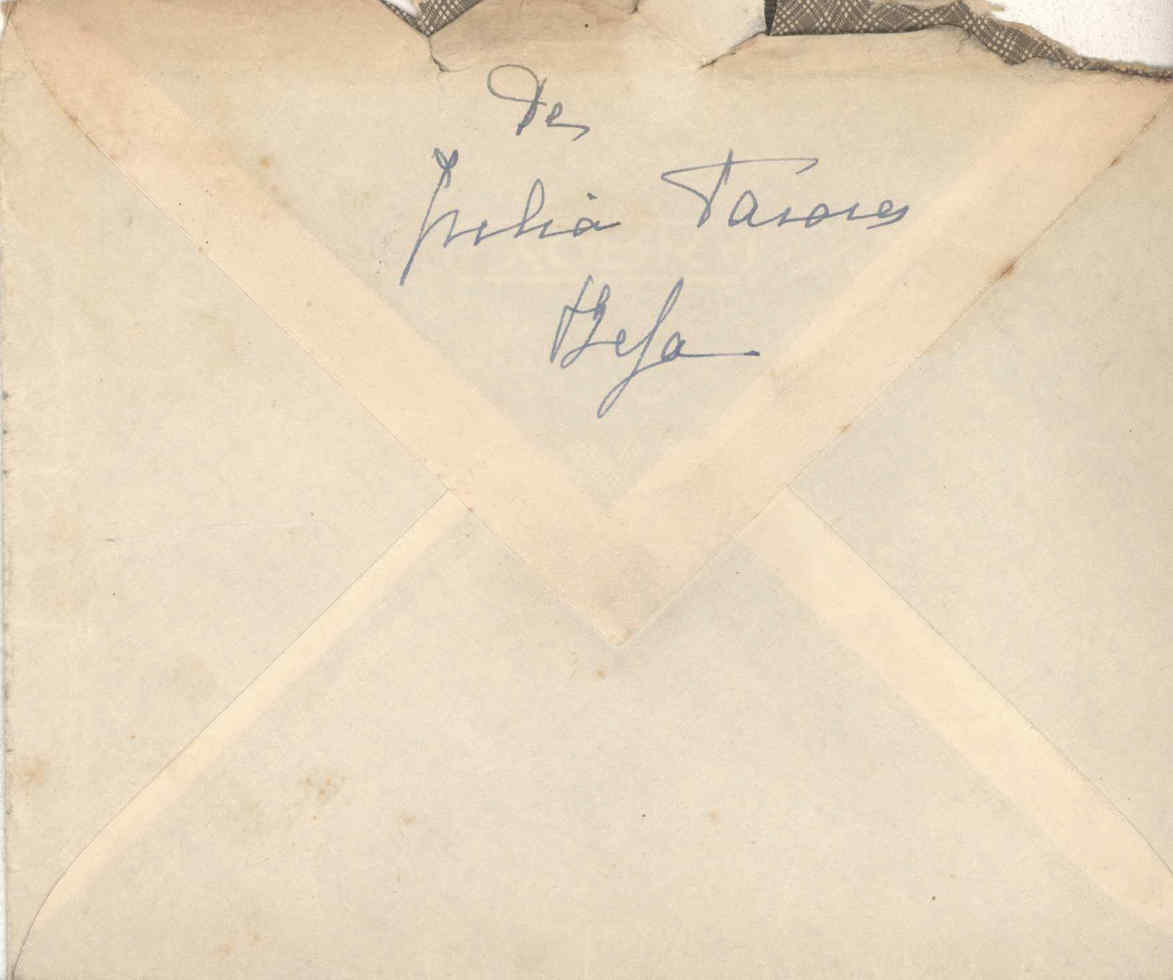 De
Julia Tavares
Beja